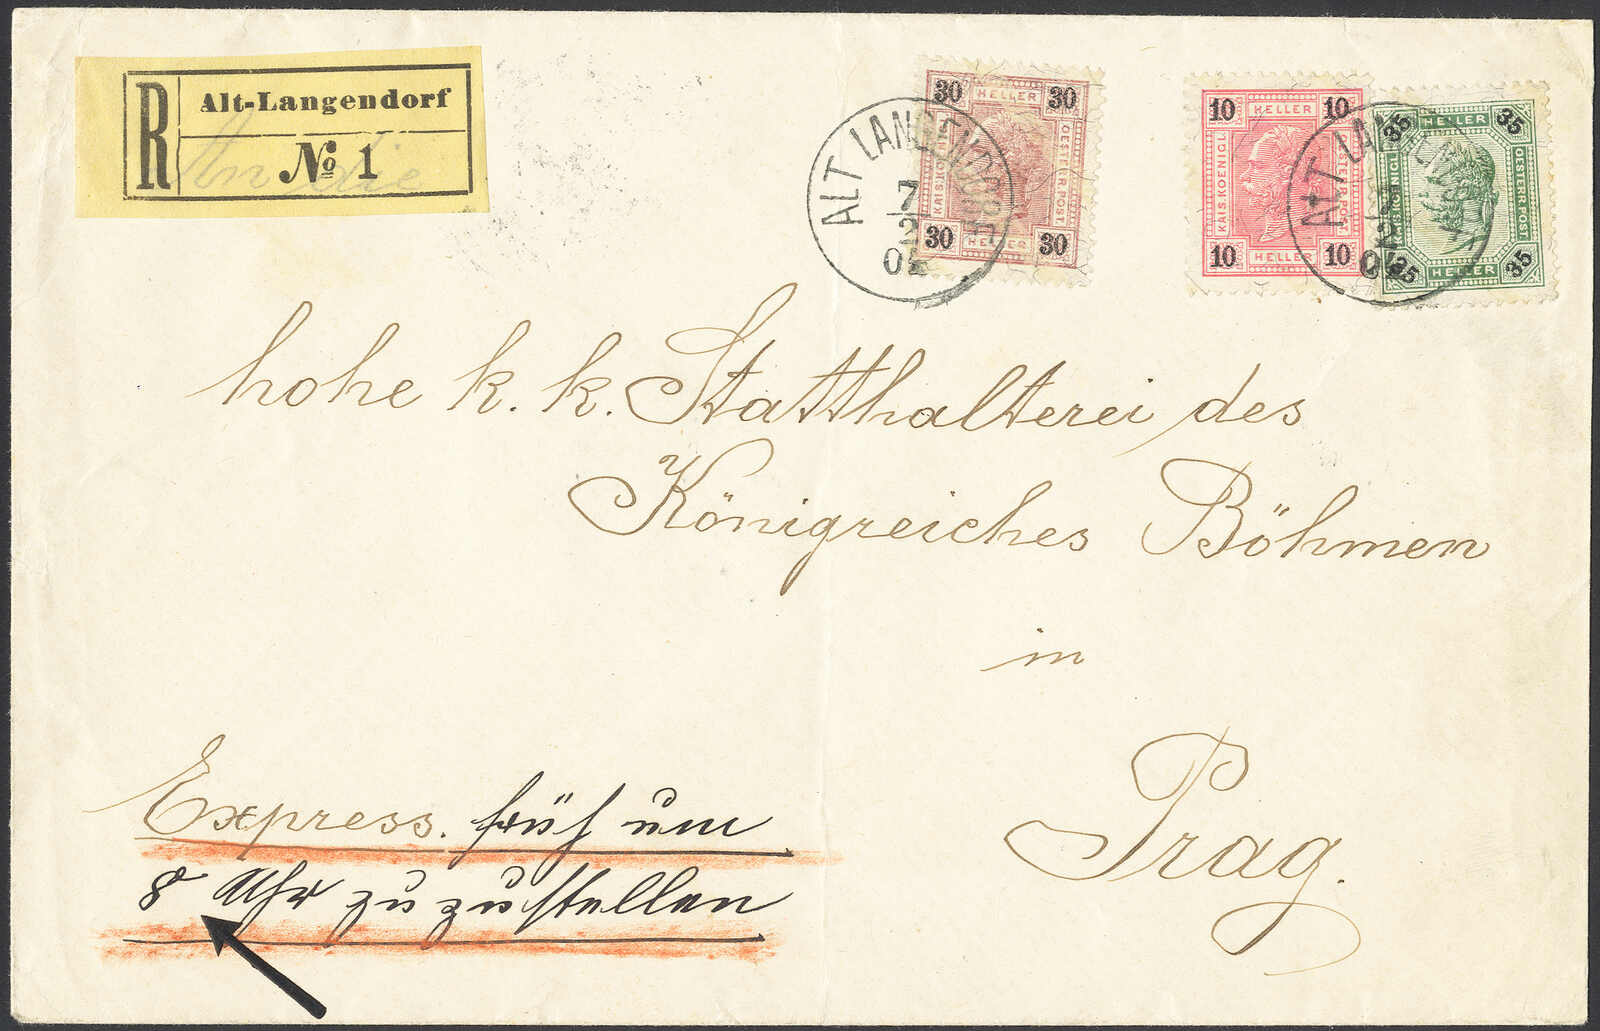 R
Alt-Langendorf
№ 1
An die
30 HELLER 30
KAIS. KOENIGL.
OESTERR. POST.
30 HELLER 30
10 HELLER 10
KAIS. KOENIGL.
OESTERR. POST.
10 HELLER 10
35 HELLER 35
OESTERR. POST.
35 HELLER 35
ALT LANGENDORF
7
2
ALT LANGENDORF
hohe k. k. Statthalterei des
Königreiches Böhmen
in
Prag.
Express. früh um
8 Uhr zuzustellen